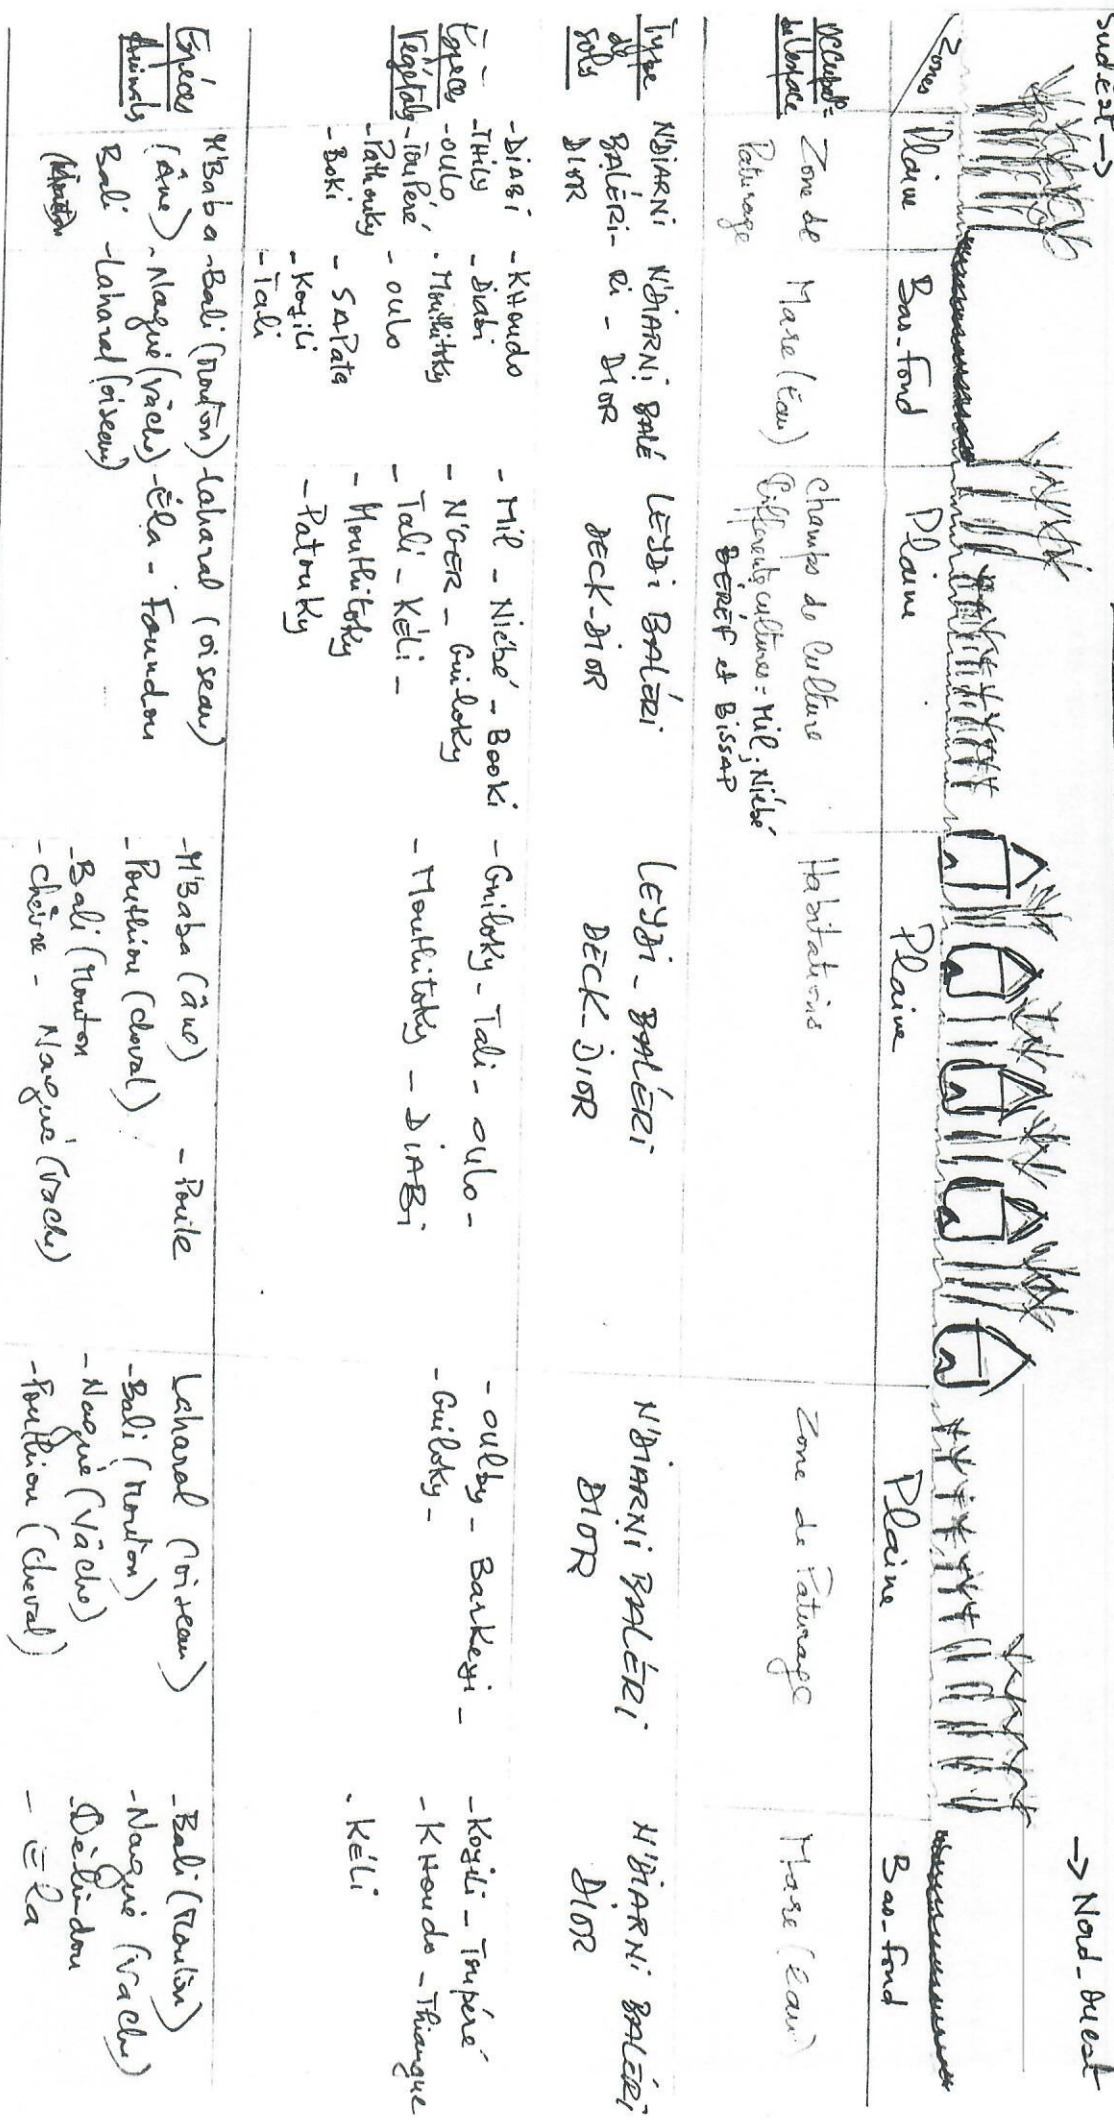 Sudest →
→ Nord-Ouest
Zones
Plaine
Bas-fond
Plaine
Plaine
Plaine
Bas-fond
Occupat°
de l'espace
Zone de
Paturage
Mare (Eau)
Champs de Culture
Différente cultures = Mil, Niébé
BÉREF et BISSAP
Habitations
Zone de Paturage
Mare (Eau)
Type
de
Sols
N'DIARNI
BALÉRI-
DIOR
N'DIARNI BALÉ
RI - DIOR
LEYDI BALÉRI
DECK-DIOR
LEYDI - BALÉRI
DECK-DIOR
N'DIARNI BALÉRI
DIOR
N'DIARNI BALÉRI
DIOR
Espèces
Végétals
- DIABI
- THILY
- OULO
- TOUPÉRÉ
- Pathouky
- Boki
- KHOUDO
- Diabi
- Mouthitoky
- OULO
- SAPATA
- Koyili
- Tali
- Mil - Niébé - Booki
- N'GER - Guiloky
- Tali - KÉLI -
- Mouthitoky
- Patouky
- Guiloky - Tali - OULO -
- Mouthitoky - DIABI
- OULBY - Barkeyi -
- Guiloky -
- Koyili - Toupéré
- KHOUDO - Thiangue
- KÉLI
Espèces
Animals
M'Baba
(Âne)
Bali
(Mouton)
- Bali (Mouton)
- Nagué (Vâche)
- Laharal (oiseau)
- Laharal (oiseau)
- Éla - Foundou
- M'Baba (âne)
- Pouthiou (cheval)
- Bali (Mouton
- Chèvre - Nagué (Vache)
- Poule
Laharal (oiseau)
- Bali (Mouton)
- Nagué (Vâche)
- Pouthiou (Cheval)
- Bali (Mouton)
- Nagué (Vache)
- Délindou
- Éla